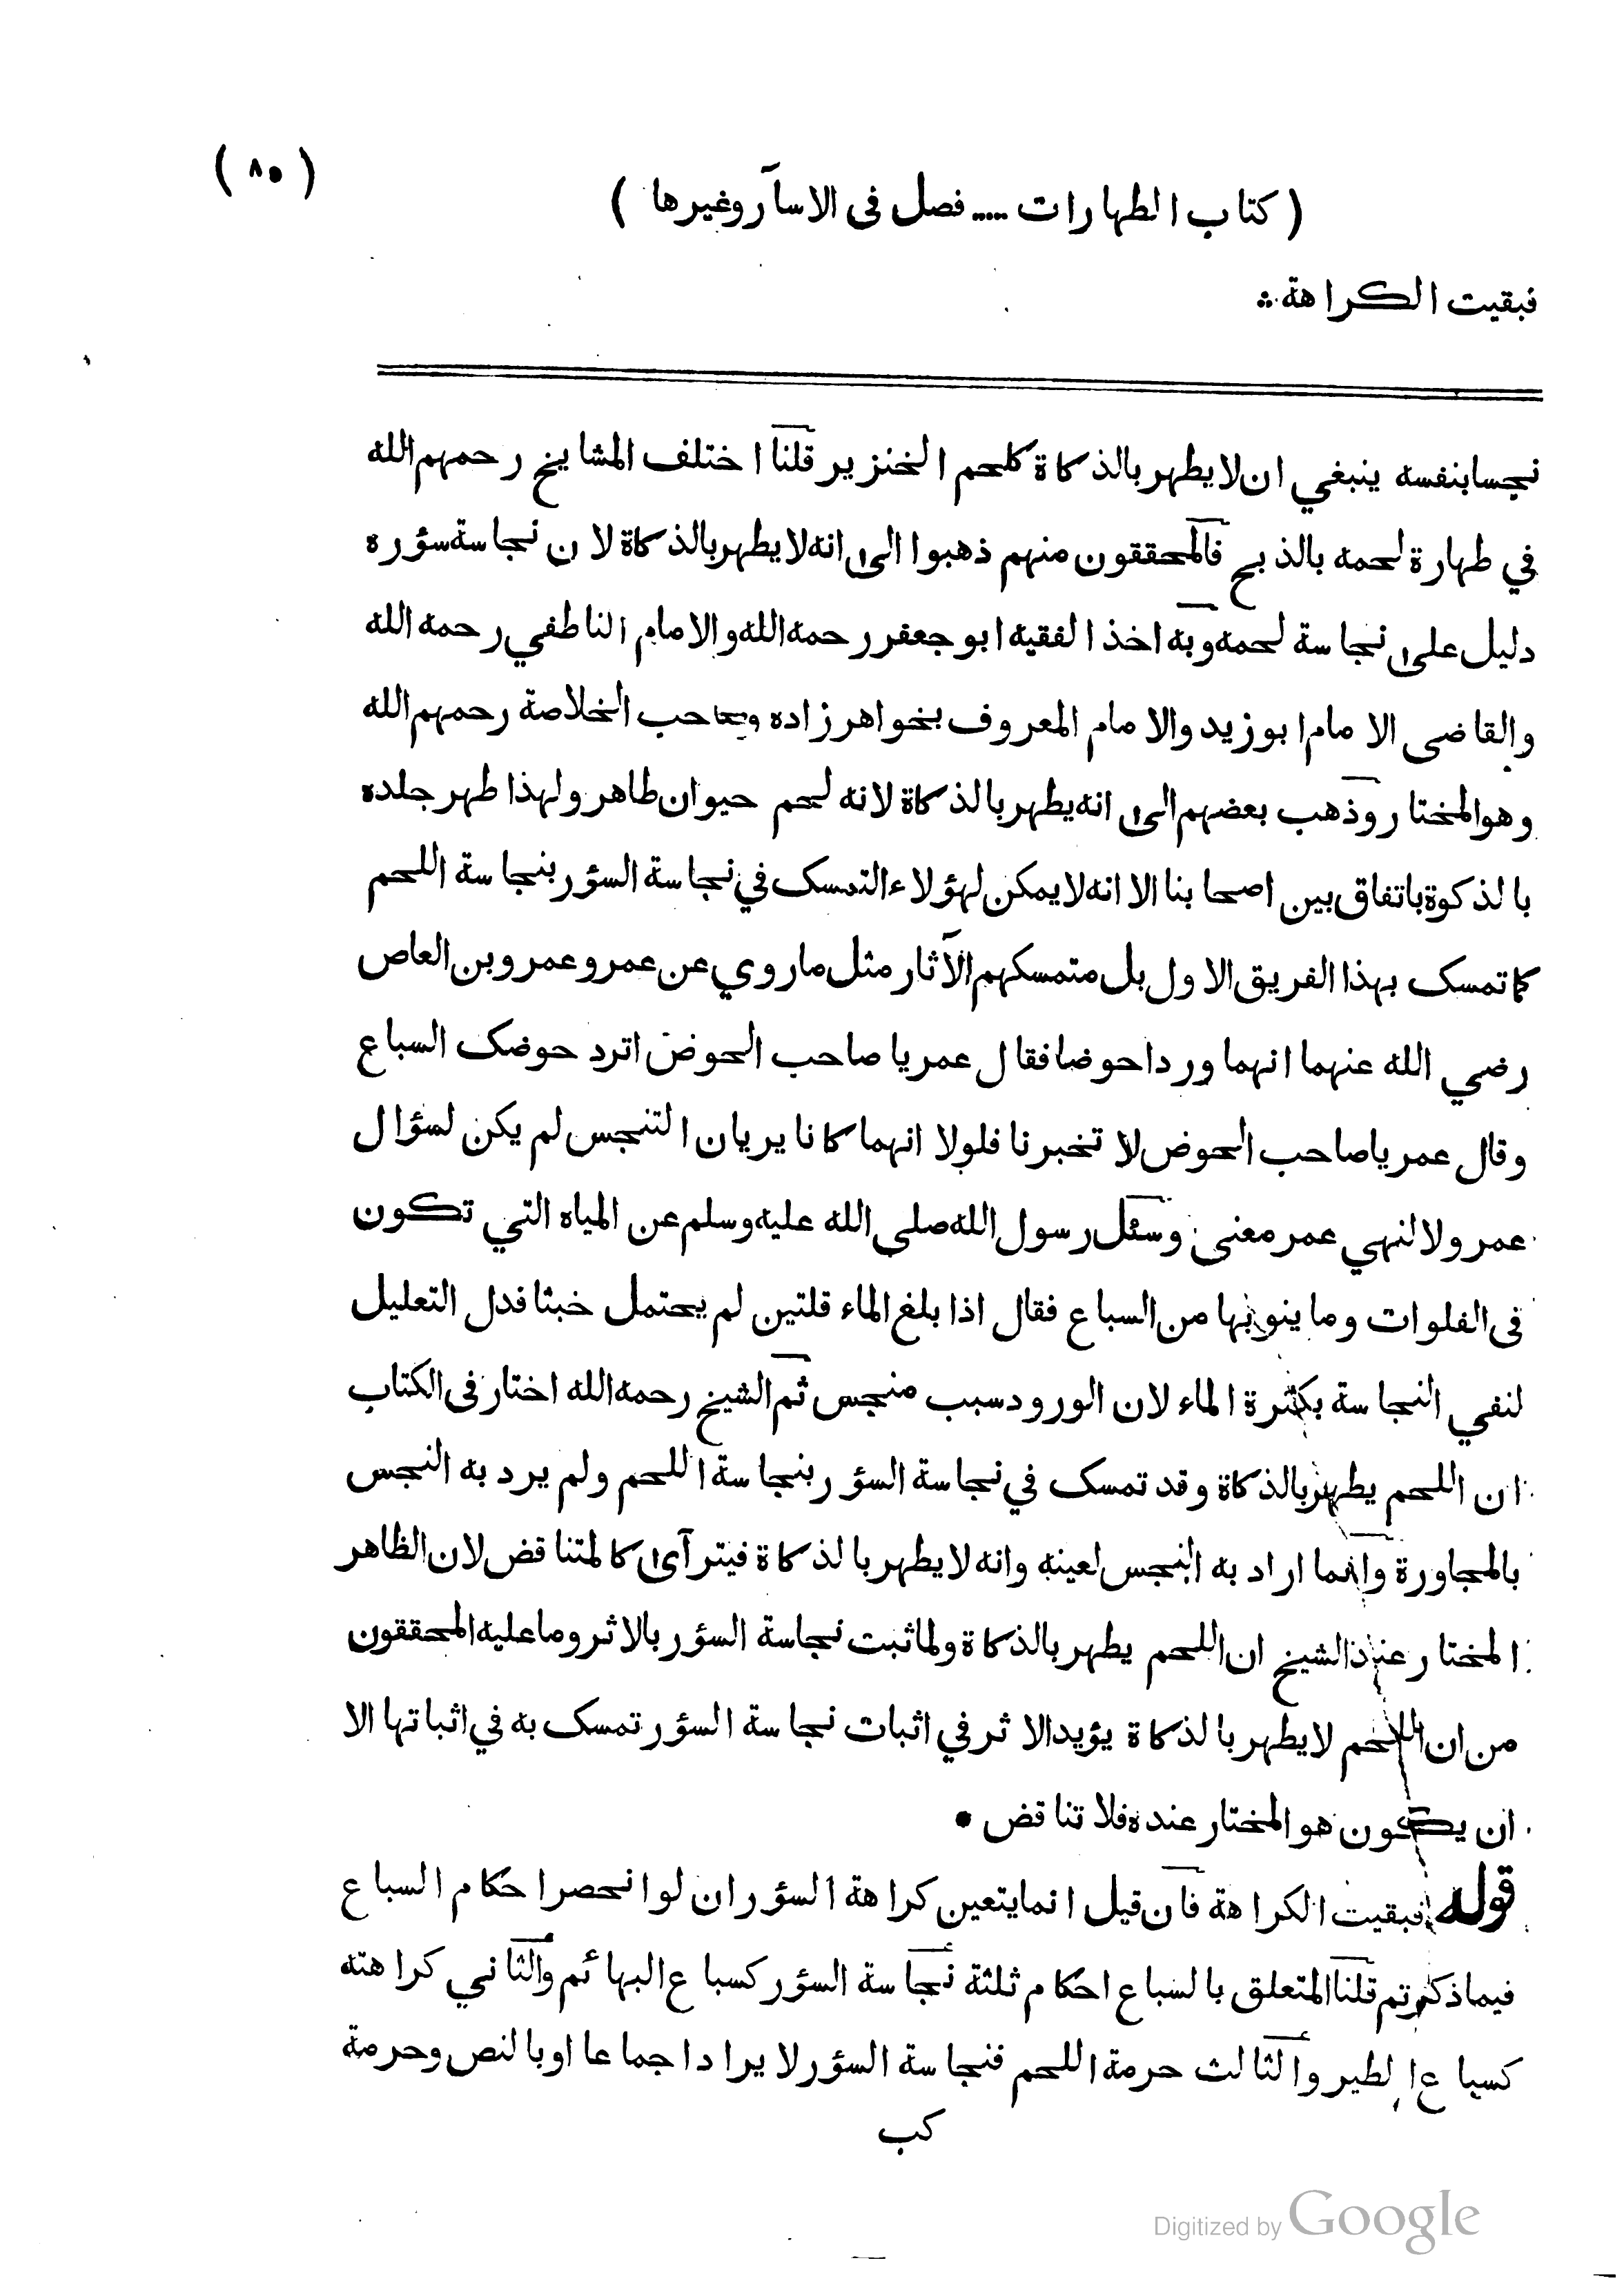 ( ٨٥ )
( كتاب الطهارات ..... فصل فى الاسآر وغيرها )
فبقيت الكراهة
نجسا بنفسه ينبغي ان لا يطهر بالذكاة كلحم الخنزير قلنا اختلف المشايخ رحمهم الله
في طهارة لحمه بالذبح فالمحققون منهم ذهبوا الى انه لا يطهر بالذكاة لان نجاسة سؤره
دليل على نجاسة لحمه وبه اخذ الفقيه ابو جعفر رحمه الله والامام الناطفي رحمه الله
والقاضى الامام ابو زيد والامام المعروف بخواهر زاده وصاحب الخلاصة رحمهم الله
وهو المختار وذهب بعضهم الى انه يطهر بالذكاة لانه لحم حيوان طاهر ولهذا طهر جلده
بالذكوة باتفاق بين اصحابنا الا انه لا يمكن لهؤلاء التمسك في نجاسة السؤر بنجاسة اللحم
كما تمسك بهذا الفريق الاول بل متمسكهم الآثار مثل ما روي عن عمر وعمرو بن العاص
رضي الله عنهما انهما وردا حوضا فقال عمر يا صاحب الحوض اترد حوضك السباع
وقال عمر يا صاحب الحوض لا تخبرنا فلولا انهما كانا يريان التنجس لم يكن لسؤال
عمر ولا لنهي عمر معنى وسئل رسول الله صلى الله عليه وسلم عن المياه التي تكون
فى الفلوات وما ينوبها من السباع فقال اذا بلغ الماء قلتين لم يحتمل خبثا فدل التعليل
لنفي النجاسة بكثرة الماء لان الورود سبب منجس ثم الشيخ رحمه الله اختار فى الكتاب
ان اللحم يطهر بالذكاة وقد تمسك في نجاسة السؤر بنجاسة اللحم ولم يرد به النجس
بالمجاورة وانما اراد به النجس لعينه وانه لا يطهر بالذكاة فيترآى كالمتناقض لان الظاهر
المختار عند الشيخ ان اللحم يطهر بالذكاة ولما ثبت نجاسة السؤر بالاثر وما عليه المحققون
من ان اللحم لا يطهر بالذكاة يؤيد الاثر في اثبات نجاسة السؤر تمسك به في اثباتها الا
ان يكون هو المختار عنده فلا تناقض •
قوله فبقيت الكراهة فان قيل انما يتعين كراهة السؤر ان لو انحصر احكام السباع
فيما ذكرتم قلنا المتعلق بالسباع احكام ثلثة نجاسة السؤر كسباع البهائم والثاني كراهته
كسباع الطير والثالث حرمة اللحم فنجاسة السؤر لا يراد اجماعا او بالنص وحرمة
كب
Digitized by Google